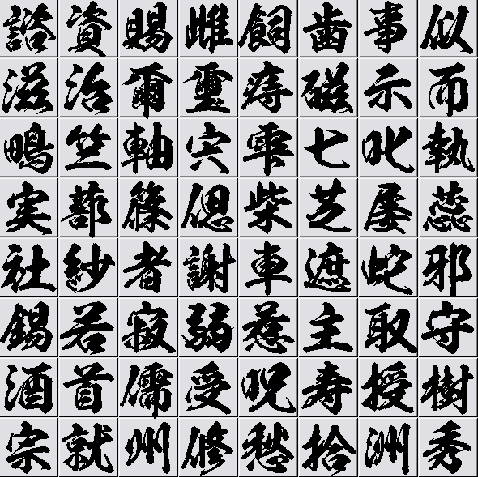 諮資賜雌飼歯事似
滋治爾璽痔磁示而
鴫竺軸宍雫七叱執
実蔀篠偲柴芝屡蕊
社紗者謝車遮蛇邪
錫若寂弱惹主取守
酒首儒受呪寿授樹
宗就州修愁拾洲秀